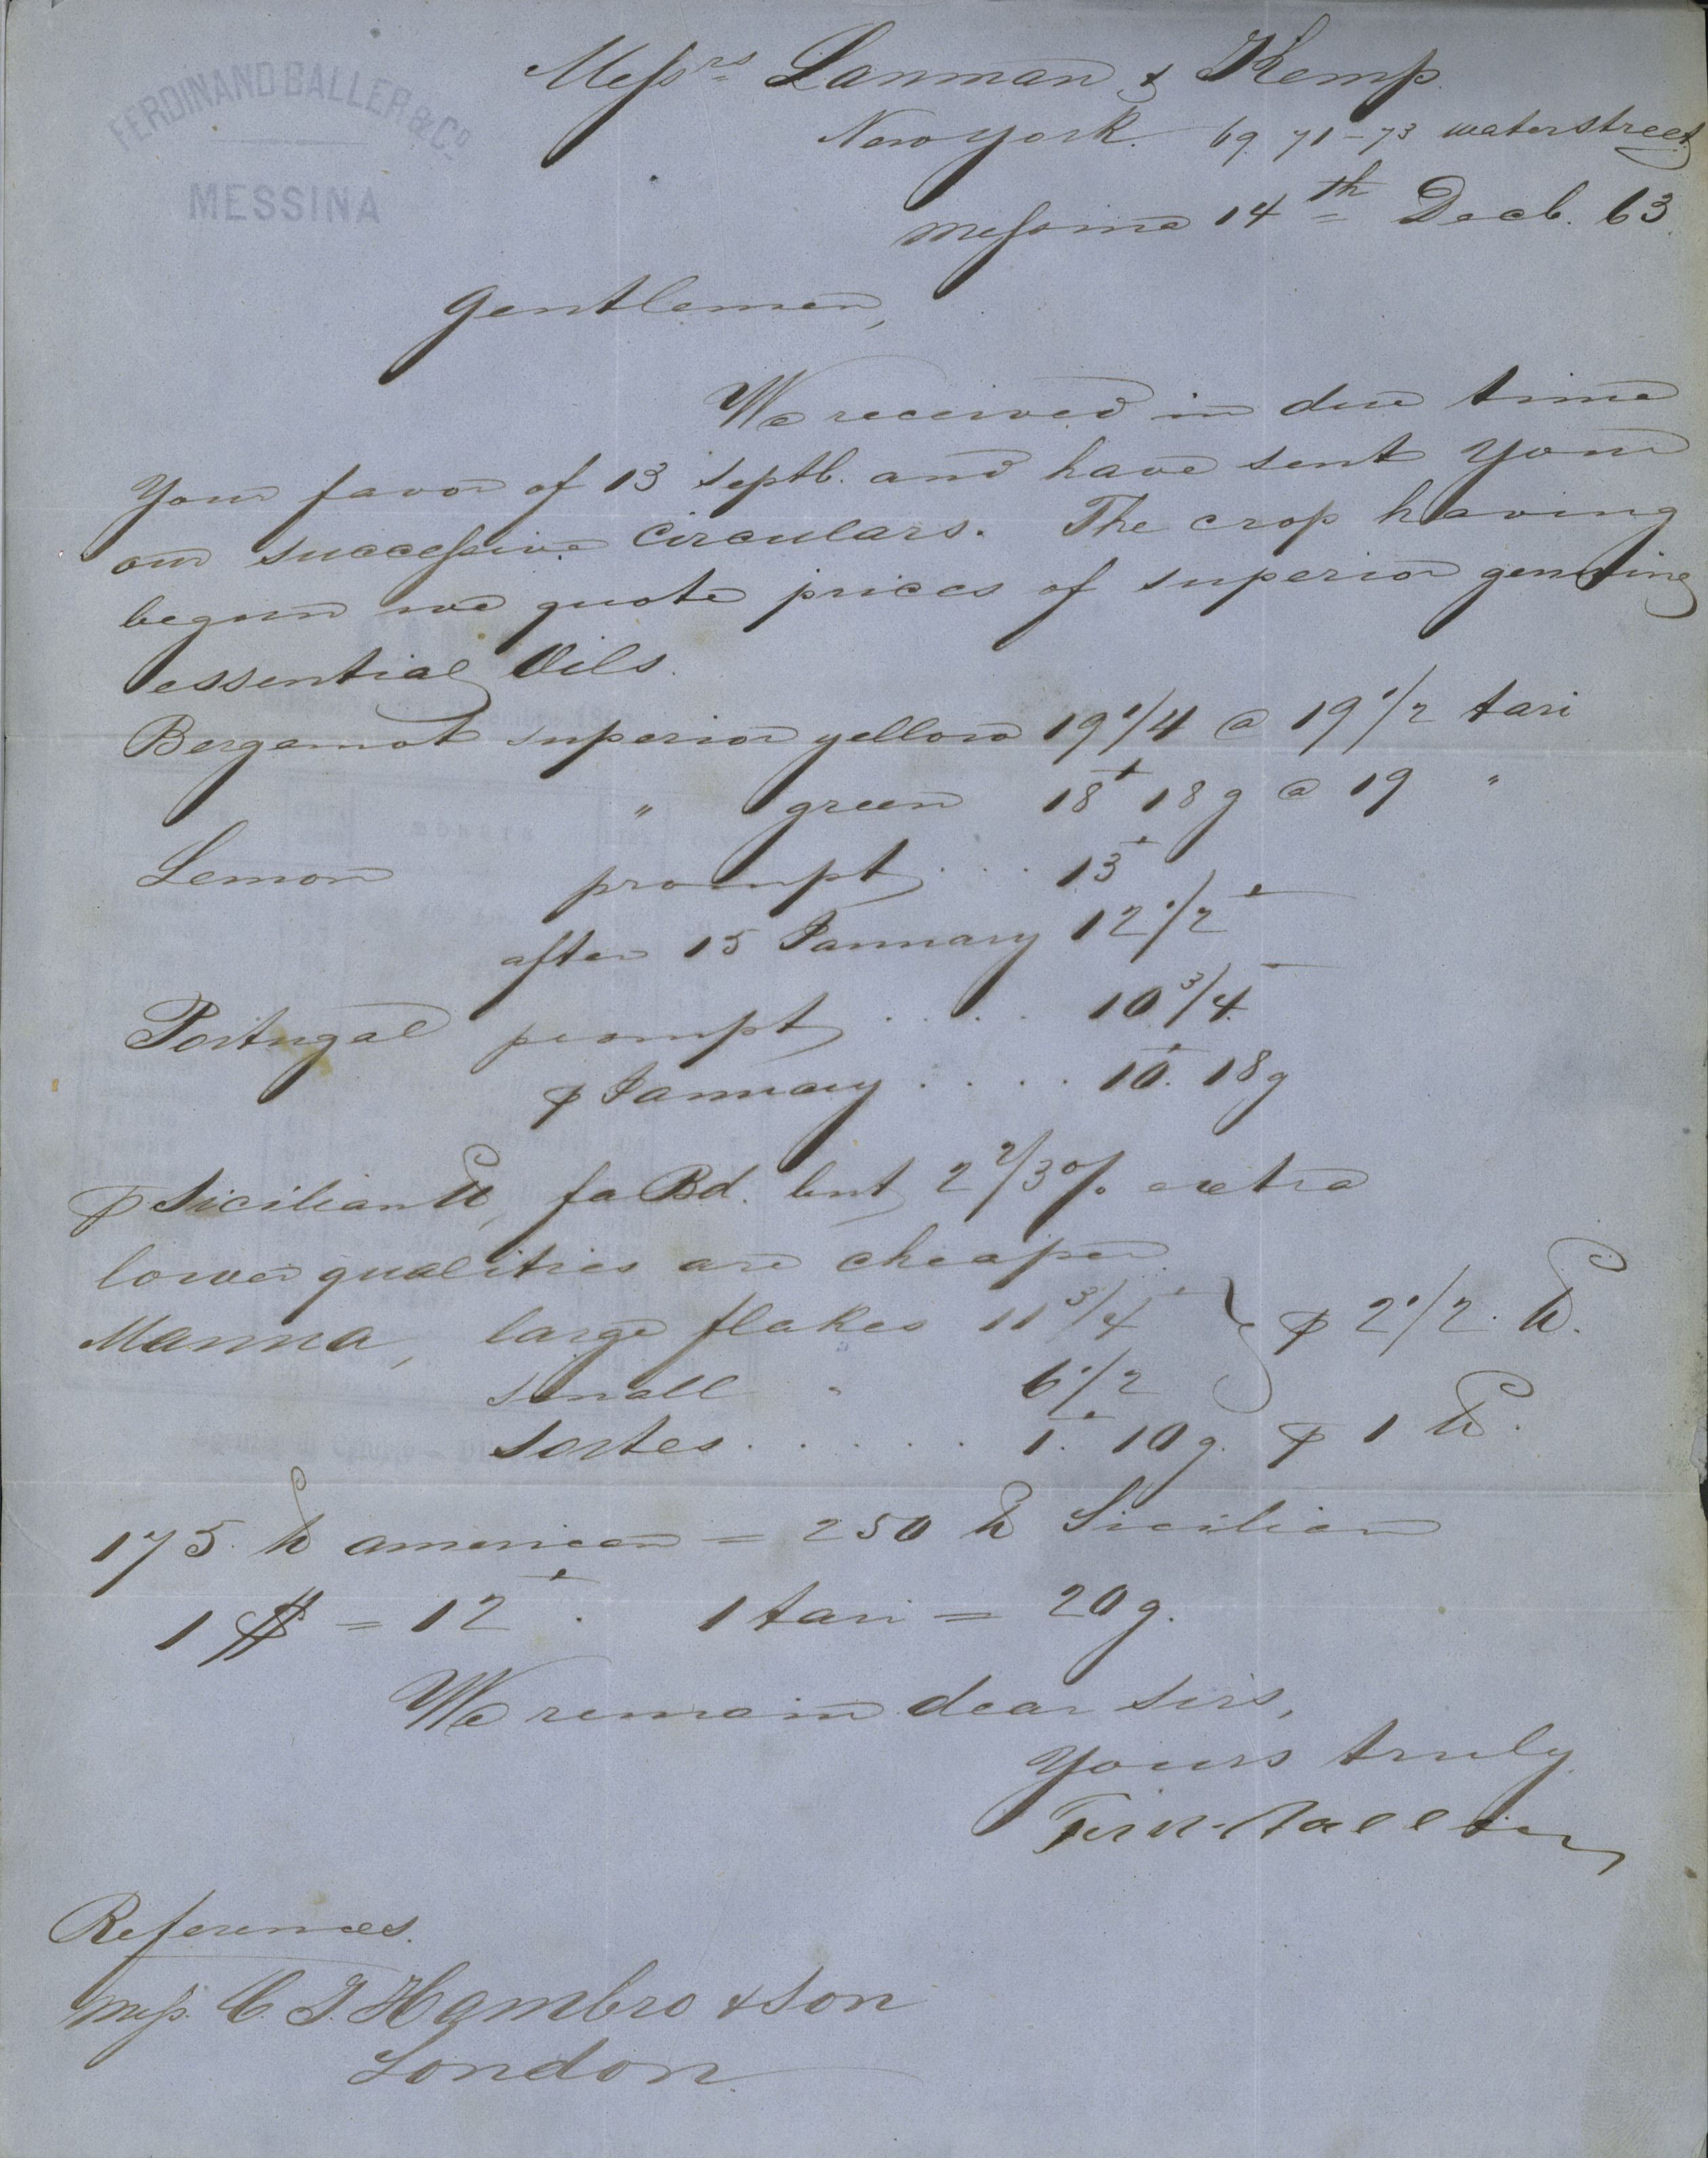 FERDINAND BALLER & Co
MESSINA
Messrs Lanman & Kemp
New York. 69. 71-73 waterstreet
Messina 14th Decb. 63.
Gentlemen,
We received in due time
Your favor of 13 Septb. and have sent Your
our successive Circulars. The crop having
begun we quote prices of superior genuine
essential Oils.
Bergamot superior yellow 19 1/4 @ 19 1/2 tari
" green 18t 18g @ 19 "
Lemon prompt .... 13t
after 15 January 12 1/2 t
Portugal prompt ..... 10 3/4
⅌ January .... 10t. 18g
⅌ Sicilian ℔, fo Bd. but 2 2/3 % extra
lower qualities are cheaper.
Manna, large flakes 11 3/4 t } ⅌ 2 1/2 ℔.
small " 6 1/2
Sortes ...... 1t. 10g. ⅌ 1 ℔.
175 ℔ american = 250 ℔ Sicilian
1 $ = 12t. 1 tari = 20g.
We remain dear sirs,
Yours truly
Ferd. Baller
References.
Mess. C. J. Hambro & Son
London.